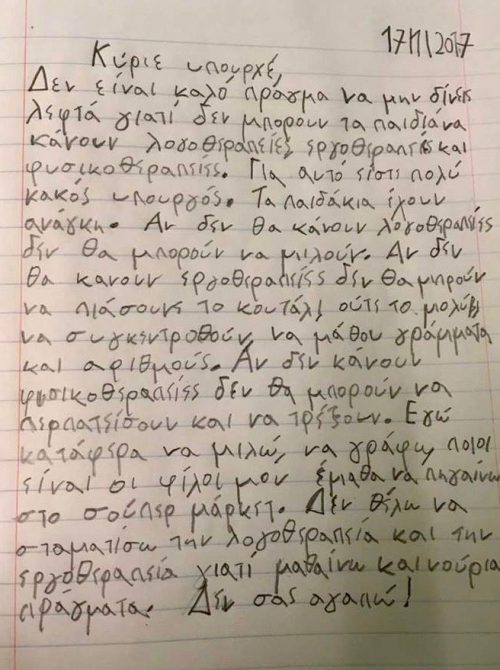 17/11/2017
Κύριε υπουργέ,
Δεν είναι καλό πράγμα να μην δίνεις
λεφτά γιατί δεν μπορουν τα παιδιά να
κάνουν λογοθεραπείες, εργοθεραπείες και
φυσικοθεραπείες. Για αυτό είστι πολύ
κακός υπουργός. Τα παιδάκια έχουν
ανάγκη. Αν δεν θα κάνουν λογοθεραπείες
δεν θα μπορούν να μιλούν. Αν δεν
θα κανουν εργοθεραπείες δεν θα μπρούν
να πιάσουνε το κουτάλι ούτε το μολύβι,
να συγκεντροθούν, να μάθου γράμματα
και αριθμούς. Αν δεν κάνουν
φυσικοθεραπείες δεν θα μπορούν να
περπατείσουν και να τρέξουν. Εγώ
κατάφερα να μιλώ, να γράφω, ποιοι
είναι οι φίλοι μου έμαθα να πηγαίνω
στο σούπερ μάρκετ. Δεν θέλω να
σταματίσω την λογοθεραπεία και την
εργοθεραπεία γιατι μαθαίνω καινούρια
πράγματα. Δεν σας αγαπώ!